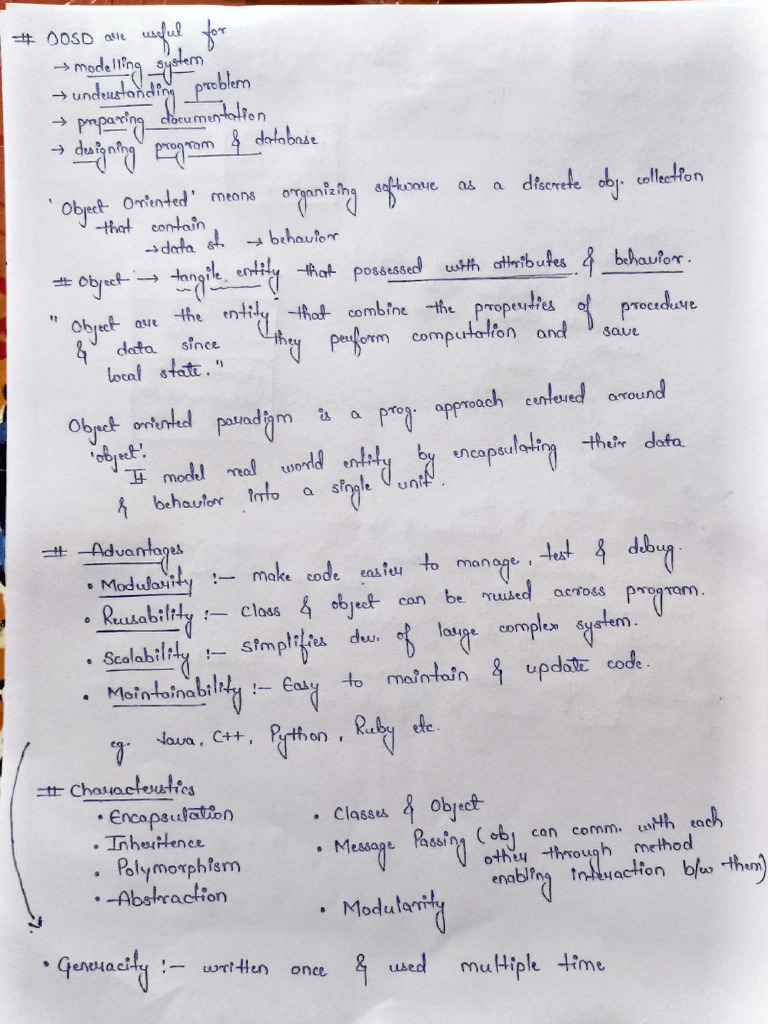 # OOSD are useful for
→ modelling system
→ understanding problem
→ preparing documentation
→ designing program & database
'Object Oriented' means organizing software as a discrete obj. collection
that contain
→ data st → behavior
# Object → tangile entity that possessed with attributes & behavior.
" Object are the entity that combine the properties of procedure
& data since they perform computation and save
local state."
Object oriented paradigm is a prog. approach centered around
'object'.
It model real world entity by encapsulating their data
& behavior into a single unit.
# Advantages
• Modularity :- make code easier to manage, test & debug.
• Reusability :- class & object can be reused across program.
• Scalability :- simplifies dev. of large complex system.
• Maintainability :- Easy to maintain & update code.
eg. Java, C++, Python, Ruby etc.
# Characteristics
• Encapsulation
• Inheritence
• Polymorphism
• Abstraction
• Classes & Object
• Message Passing (obj can comm. with each
other through method
enabling interaction b/w them)
• Modularity
• Generacity :- written once & used multiple time